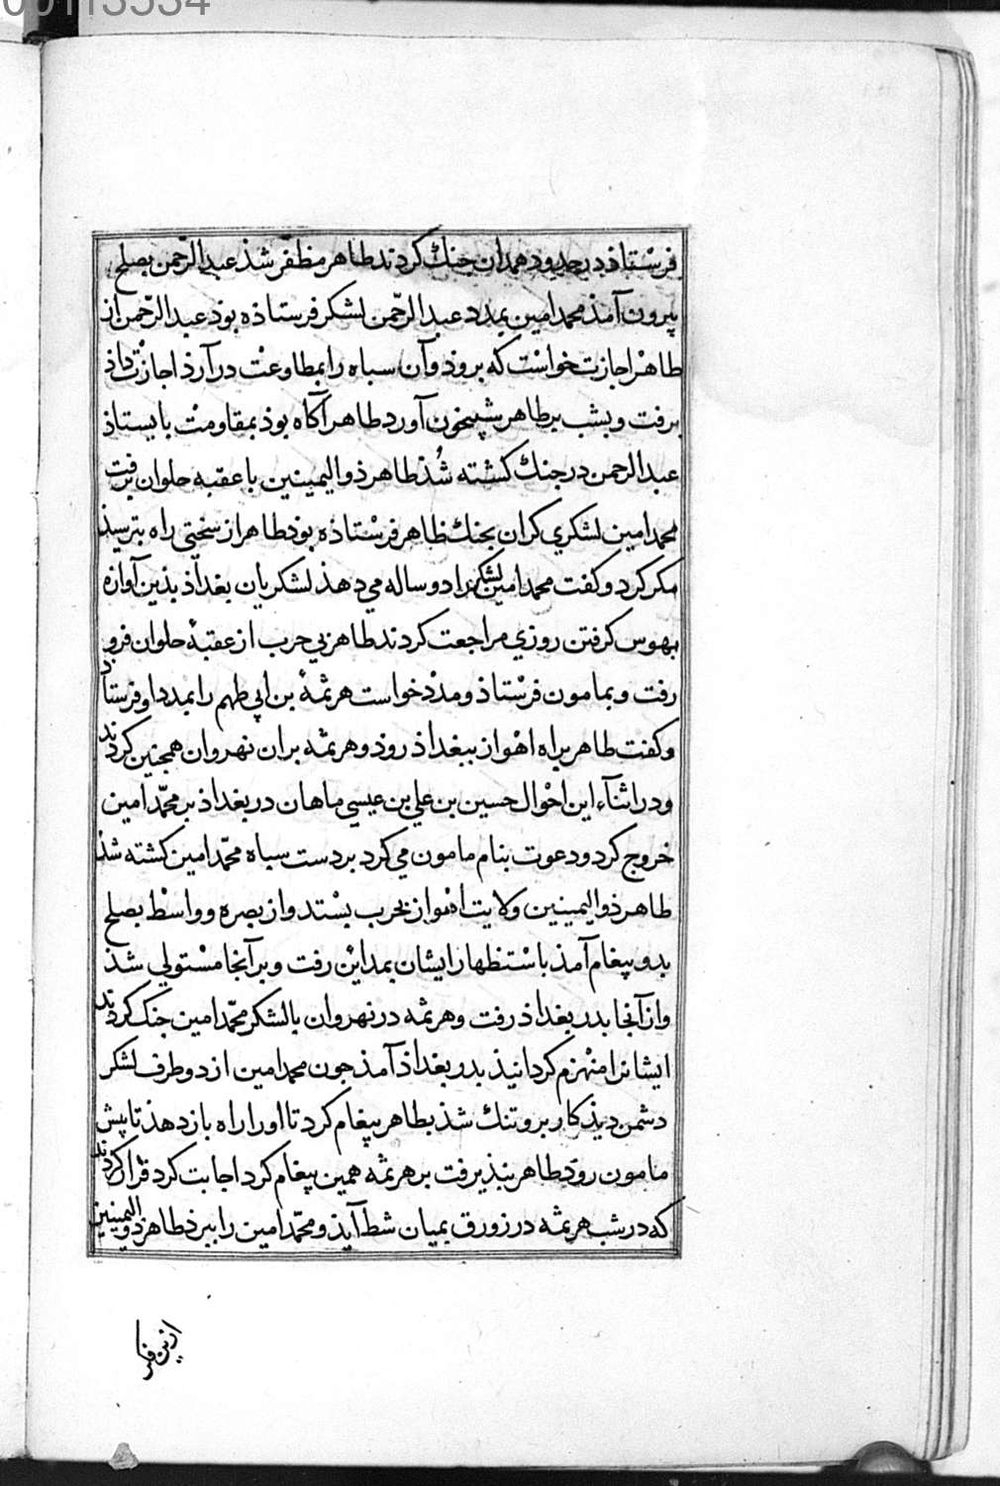 00113534
فرستاذ در حدود همدان جنك كردند طاهر مظفّر شذ عبد الرّحمن بصلح
بيرون آمذ محمد امين بمدد عبد الرّحمن لشكر فرستاذه بوذ عبد الرّحمن از
طاهر اجازت خواست كه بروذ وآن سباه را بمطاوعت در آرذ اجازت داذ
برفت وبشب بر طاهر شبيخون آورد طاهر آكاه بوذ بمقاومت بايستاذ
عبد الرحمن در جنك كشته شُذ طاهر ذو اليمينين با عقبه حلوان برفت
محمد امين لشكري كران بجنك طاهر فرستاذه بوذ طاهر از سختي راه بترسيذ
مكر كرد وكفت محمد امين لشكر را دو ساله مي دهذ لشكريان بغداذ بذين آوازه
بهوس كرفتن روزي مراجعت كردند طاهر بي حرب از عقبهٔ حلوان فرو
رفت وبمامون فرستاذ ومدذ خواست هرثمهٔ بن ابي طهم را بمدد او فرستاد
وكفت طاهر براه اهواز ببغداذ روذ وهرثمه بران نهروان همچنين كردند
ودر اثنآء اين احوال حسين بن علي بن عيسي ماهان در بغداذ بر محمّد امين
خروج كرد ودعوت بنام مامون مي كرد بر دست سباه محمّد امين كشته شذ
طاهر ذو اليمينين ولايت اهواز بحرب بستد واز بصره وواسط بصلح
بدو پيغام آمذ باستظهار ايشان بمداين رفت وبر آنجا مستولي شذ
واز آنجا بدر بغداذ رفت وهرثمه در نهروان با لشكر محمّد امين جنك كردند
ايشانرا منهزم كردانيذ بدر بغداذ آمذ جون محمد امين از دو طرف لشكر
دشمن ديذ كار برو تنك شذ بطاهر پيغام كرد تا او را راه باز دهذ تا پيش
مامون روذ طاهر نپذيرفت بر هرثمه همين پيغام كرد اجابت كرد قرار كردند
كه در شب هرثمه در زورق بميان شط آيذ ومحمّد امين را ببرذ طاهر ذو اليمينين
ازين